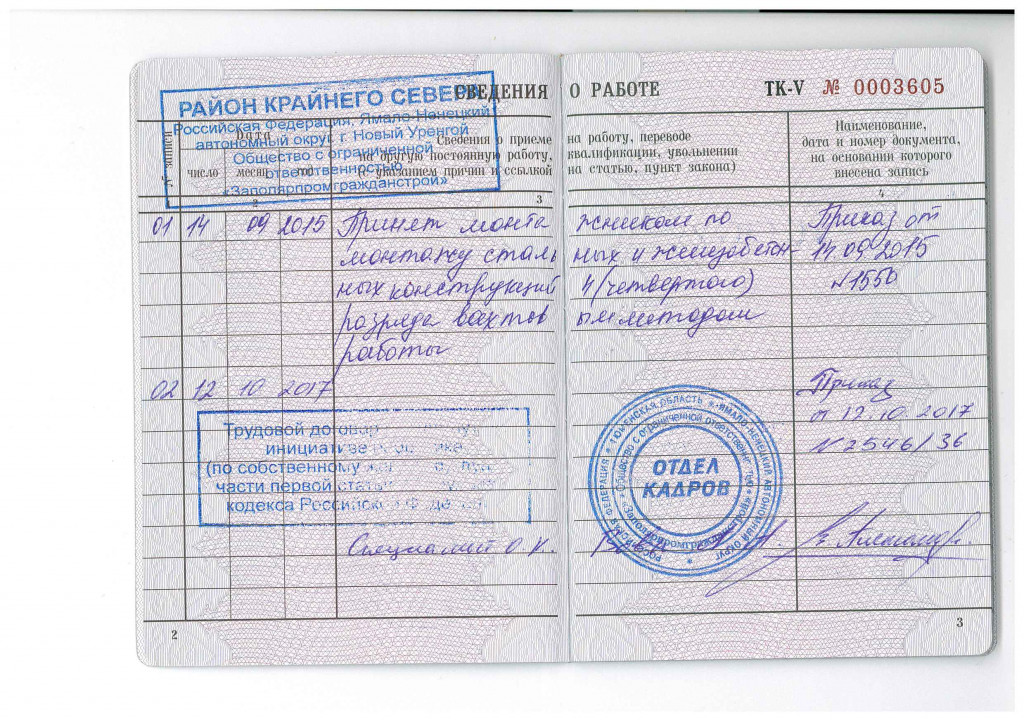 СВЕДЕНИЯ О РАБОТЕ ТК-V № 0003605
РАЙОН КРАЙНЕГО СЕВЕРА
Российская Федерация, Ямало-Ненецкий
автономный округ, г. Новый Уренгой
Общество с ограниченной
ответственностью
«Заполярпромгражданстрой»
№ записи
Дата
число
месяц
год
Сведения о приеме на работу, переводе
на другую постоянную работу, квалификации, увольнении
(с указанием причин и ссылкой на статью, пункт закона)
Наименование,
дата и номер документа,
на основании которого
внесена запись
2 3 4
01 14 09 2015 Принят монтажником по Приказ от
монтажу стальных и железобетон 14.09.2015
ных конструкций 4 (четвертого) №1550
разряда вахтовым методом
работы
02 12 10 2017 Приказ
от 12.10.2017
Трудовой договор
инициативе
(по собственному
части первой статьи
кодекса Российской Федерации
№2546/36
ОТДЕЛ
КАДРОВ
РОССИЙСКАЯ ФЕДЕРАЦИЯ * ТЮМЕНСКАЯ ОБЛАСТЬ * ЯМАЛО-НЕНЕЦКИЙ АВТОНОМНЫЙ ОКРУГ *
Общество с ограниченной ответственностью «Заполярпромгражданстрой»
Специалист О.К.
2 3